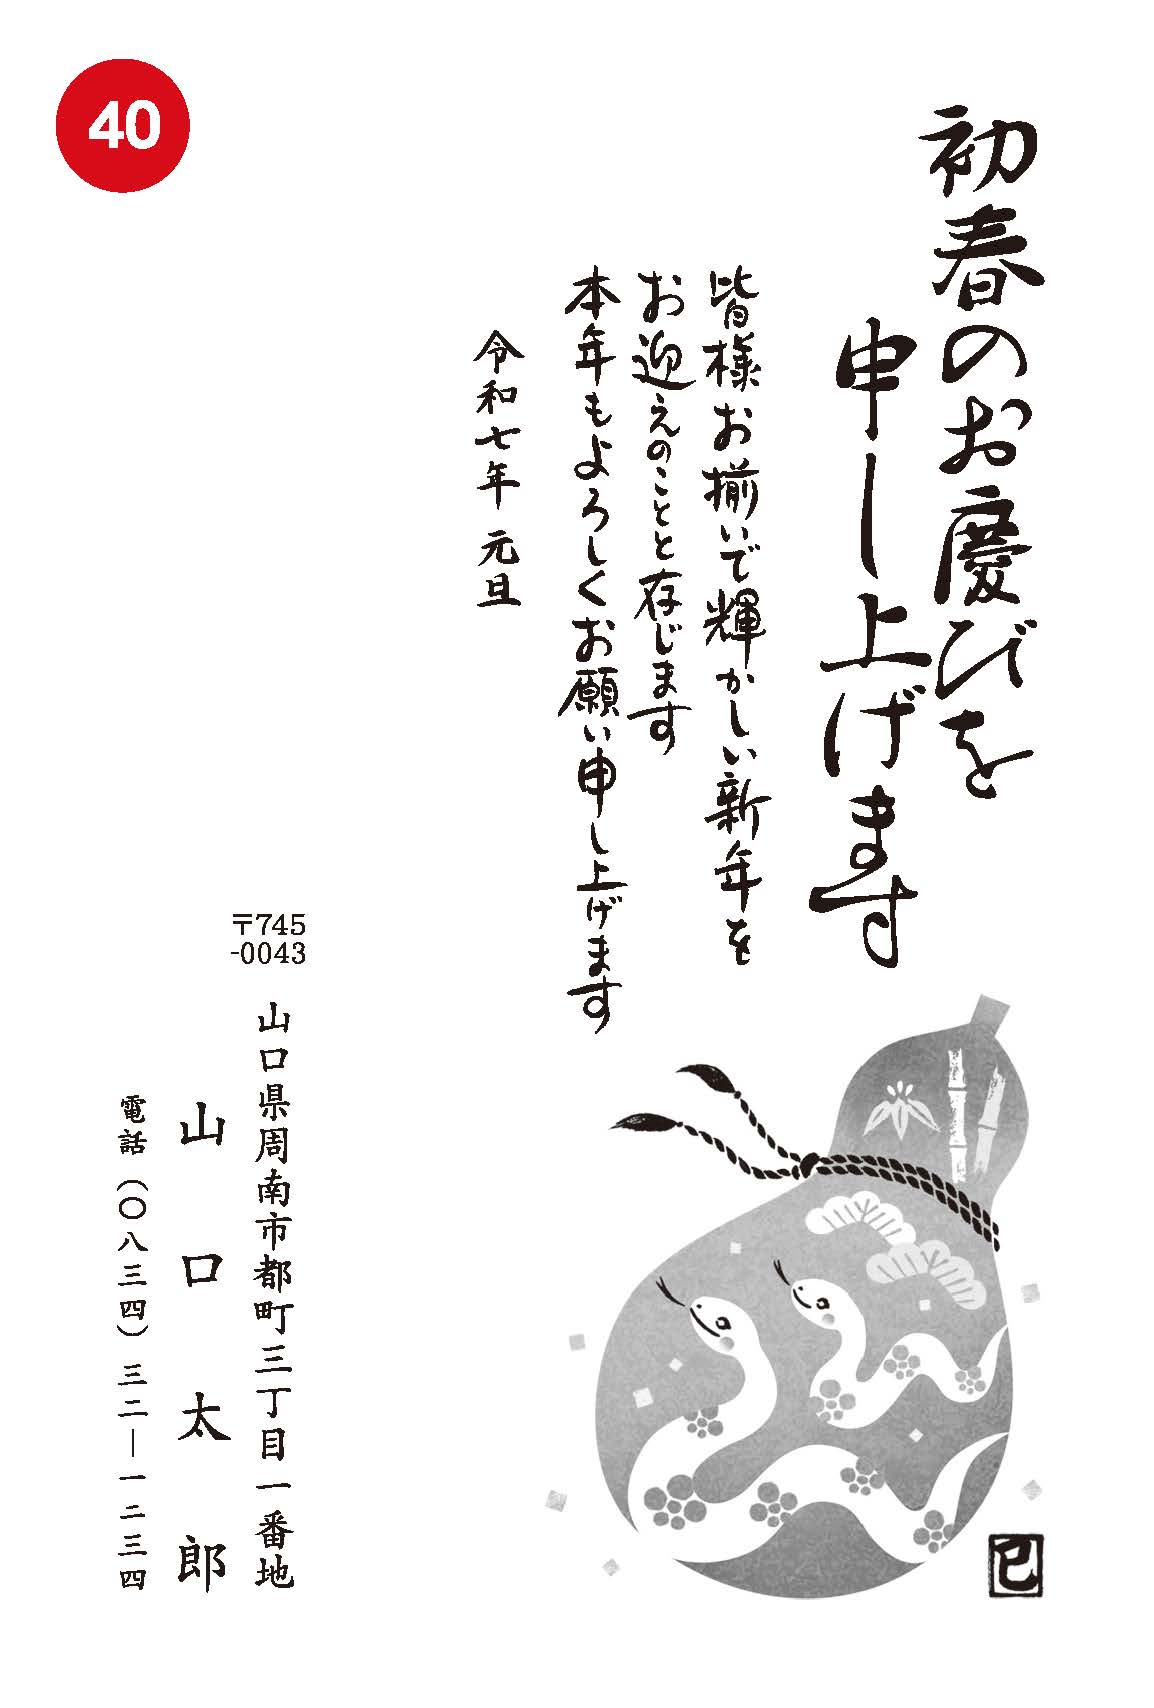 40
初春のお慶びを
申し上げます
皆様お揃いで輝かしい新年を
お迎えのことと存じます
本年もよろしくお願い申し上げます
令和七年 元旦
〒745
-0043
山口県周南市都町三丁目一番地
山口太郎
電話(〇八三四)三二―一二三四
巳